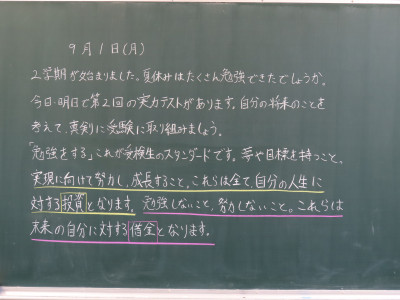 9月1日(月)
2学期が始まりました。夏休みはたくさん勉強できたでしょうか。
今日・明日で第2回の実力テストがあります。自分の将来のことを
考えて、真剣に受験に取り組みましょう。
「勉強をする」これが受検生のスタンダードです。夢や目標を持つこと。
実現に向けて努力し、成長すること。これらは全て、自分の人生に
対する投資となります。勉強しないこと、努力しないこと。これらは
未来の自分に対する借金となります。